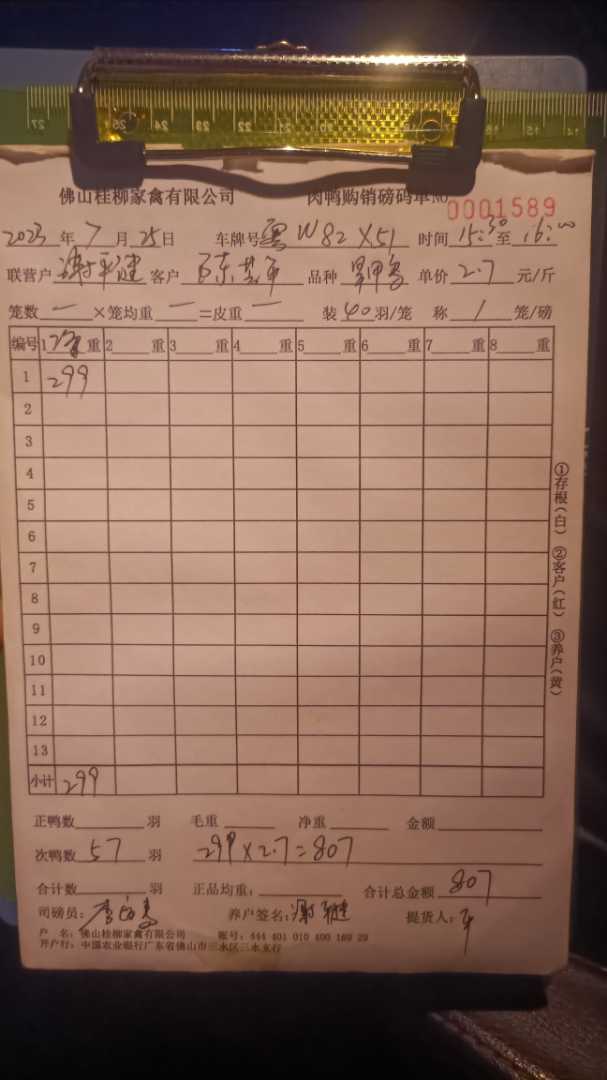 佛山桂柳家禽有限公司 肉鸭购销磅码单NO 0001589
2023年7月25日 车牌号粤W82X51 时间15:30至16:00
联营户 客户陈 品种 单价2.7元/斤
笼数一×笼均重一=皮重一 装40羽/笼 称1笼/磅
编号 1 重 2 重 3 重 4 重 5 重 6 重 7 重 8 重
1 299
2
3
4
5
6
7
8
9
10
11
12
13
小计 299
正鸭数 羽 毛重 净重 金额
次鸭数57羽 299×2.7=807
合计数 羽 正品均重: 合计总金额807
司磅员: 养户签名: 提货人:
户 名:佛山桂柳家禽有限公司 账号:444 401 010 400 169 29
开户行:中国农业银行广东省佛山市三水区三水支行
①存根(白) ②客户(红) ③养户(黄)